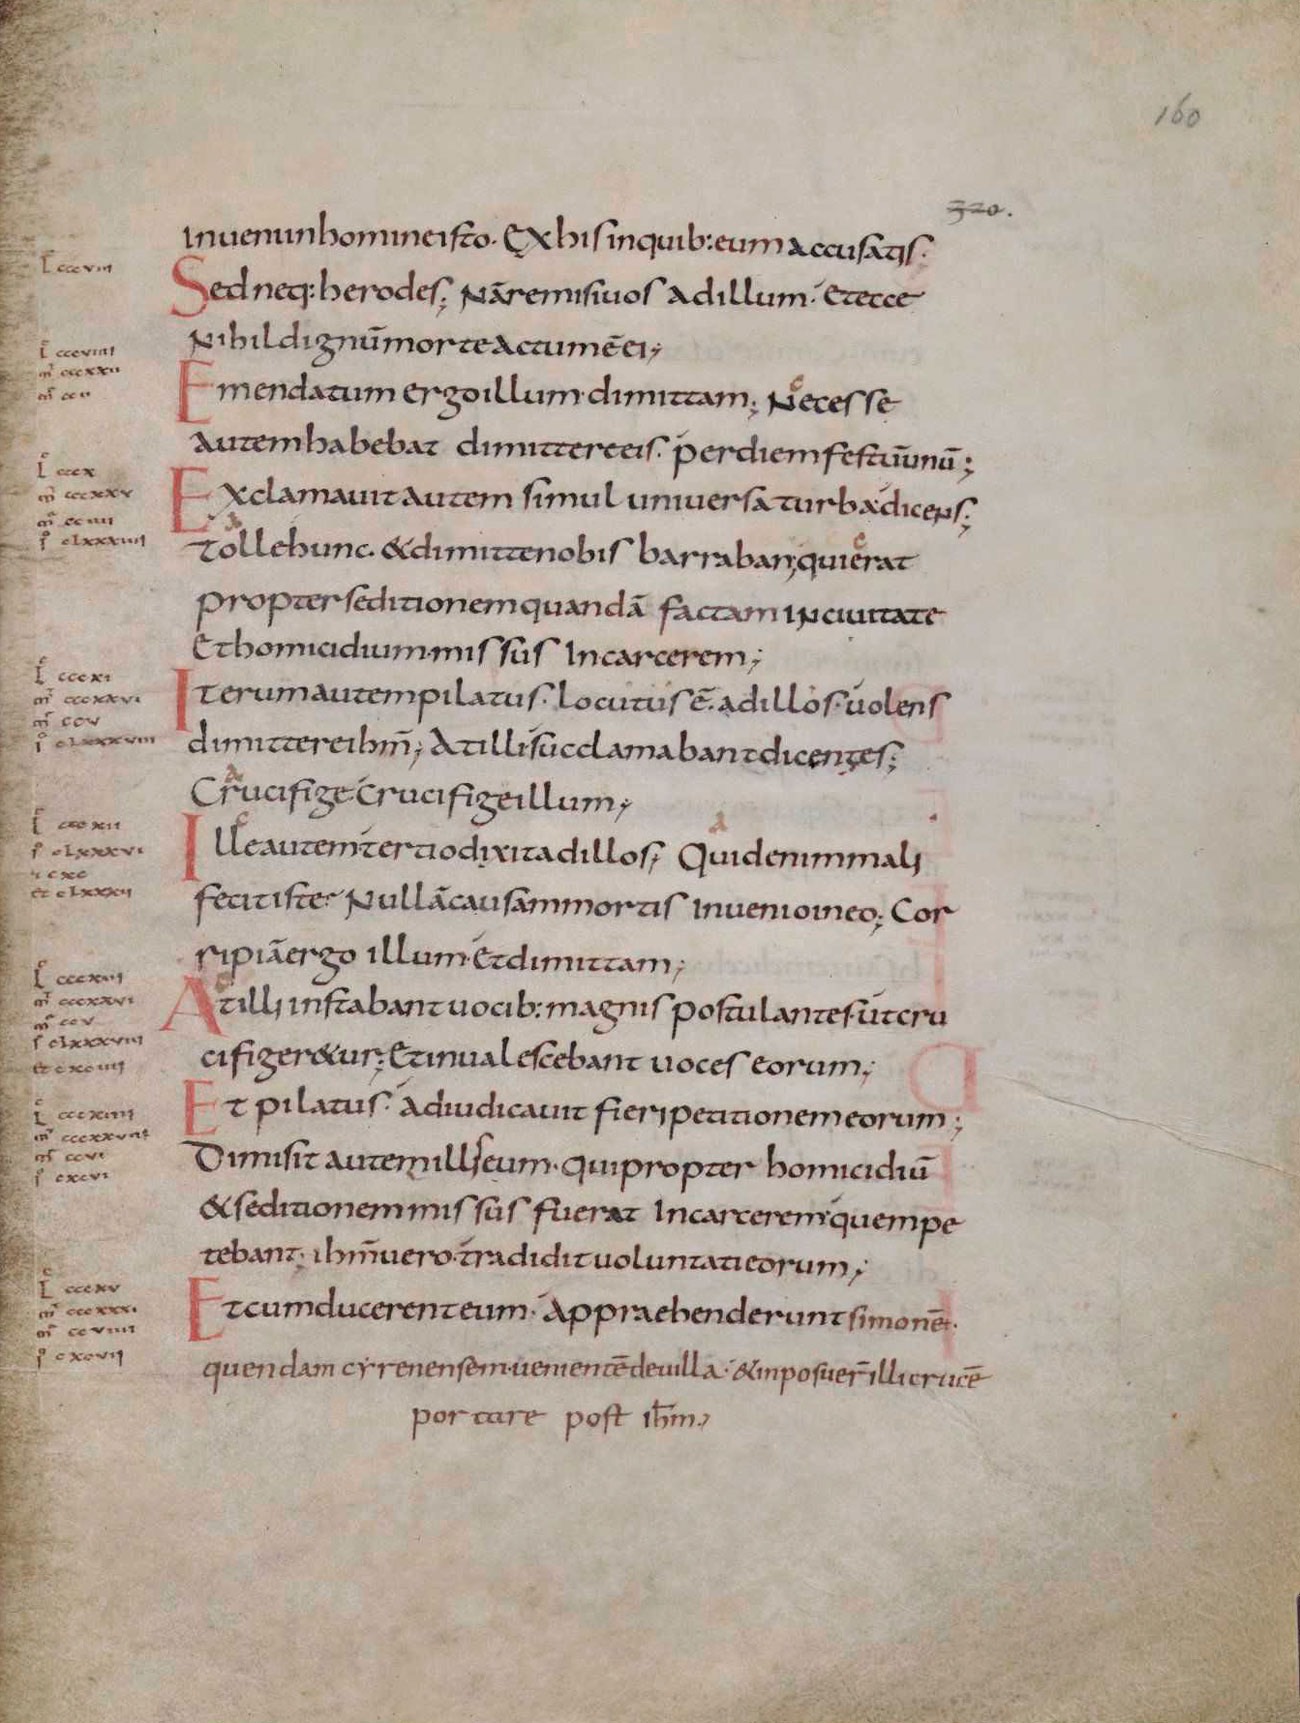 160
320.
inuenunhomineisto. Exhisinquib:eumaccusatis.
L cccviii
Sedneq:herodes; Nāremisiuos adillum. Etecce
Nihildignūmorteactumēei;
L cccviiii
mr cccxxii
mt cc
Emendatum ergoillum dimittam; Necesse
autemhabebat dimittereeis. perdiemfestūunū;
L cccx
mr cccxxv
mt cciiii
i clxxxiiii
Exclamauitautem simul uniuersaturbadicens;
tollehunc. &dimittenobis barraban;quierat
propterseditionemquandā factaminciuitate
Ethomicidium.missus Incarcerem;
L cccxi
mr cccxxvi
mt ccv
i clxxxviii
Iterumautempilatus. locutusē.adillos.uolens
dimittereihm̄; Atillisucclamabantdicentes;
Crucifige Crucifigeillum;
L cccxii
i clxxxvi
i cxc
et clxxxii
Illeautemtertiodixitadillos; Quidenimmali
fecitiste? Nullācausammortis inuenioineo; Cor
ripiāergo illum.Etdimittam;
L cccxiii
mr cccxxvi
mt ccv
i clxxxviii
et cxciiii
Atilli instabantuocib:magnis postulantesutcru
cifiger&ur; Etinualescebant uoces eorum;
L cccxiiii
mr cccxxviii
mt ccvi
i cxcvi
Et pilatus. adiudicauit fieripetitionemeorum;
Dimisit autemilliseum.quipropter homicidiū
&seditionemmissus fuerat Incarcerem.quempe
tebant; ihm̄uero.tradidituoluntatieorum;
L cccxv
mr cccxxxi
mt ccviiii
i cxcvii
Etcumducerenteum. Appraehenderuntsimonē.
quendam cyrenensem.uenientēdeuilla. &inposuer̄illicrucē
portare post ihm̄;